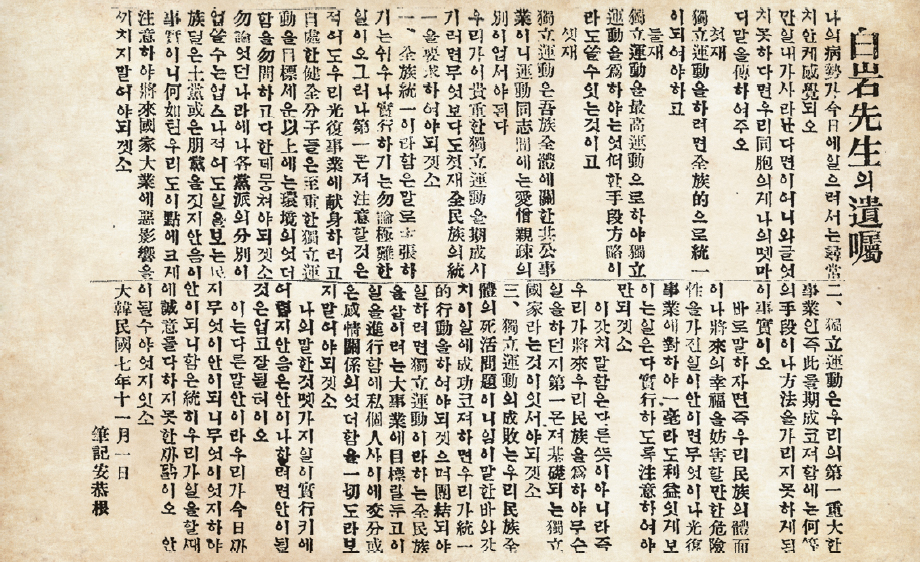 白岩先生의遺囑
나의病勢가今日에일으러서는尋常
치안케感覺되오
만일내가사라난다면이어니와글엇
치못하다면우리同胞의게나의몟마
디말을傳하여주오
첫재
獨立運動을하려면全族的으로統一
이되여야하고
둘재
獨立運動을最高運動으로하야獨立
運動을爲하야는엇더한手段方略이
라도쓸수잇는것이고
셋재
獨立運動은吾族全體에關한公共事
業이니運動同志間에는愛憎親疎의
別이업서야된다
우리가이貴重한獨立運動을期成시
기려면무엇보다도첫재全民族의統
一을要求하여야되겟소
一、全族統一이라함은말로主張하
기는쉬우나實行하기는勿論極難한
일이오그러나第一몬져注意할것은
적어도우리光復事業에献身하려고
自處한健全分子들은至重한獨立運
動을目標세운以上에는環境의엇더
함을勿問하고다한데뭉쳐야되겟소
勿論엇던나라에나各黨派의分別이
업쓸수는업스나적어도일을보는民
族덜은土黨或은朋黨을짓지안음이
事實이니何如턴우리도이點에크게
注意하야將來國家大業에惡影響을
끼치지말어야되겟소
二、獨立運動은우리의第一重大한
事業인즉此를期成코져함에는何等
의手段이나方法을가리지못하게됨
이事實이오
바로말하자면즉우리民族의體面
이나將來의幸福을妨害할만한危險
性을가진일이안이면무엇이나光復
事業에對하야一毫라도利益잇게보
이는일은다實行하도록注意하여야
만되겟소
이갓치말함은다른뜻이아니라즉
우리가將來우리民族을爲하야무슨
일을하던지第一몬져基礎되는獨立
國家라는것이잇서야되겟소
三、獨立運動의成敗는우리民族全
體의死活問題이니임이말한바와갓
치이일에成功코져하면우리가統一
的行動을하여야되겟으며團結되야
일하려면獨立運動이라하는全民族
을살이려는大事業에目標를두고이
일을進行함에私個人사이에交分或
은感情關係의엇더함을一切도라보
지말어야되겟소
나의말한것몟가지일이實行키에
어렵지안음은안이나할려면안이될
것은업고잘될터이오
이는다른말안이라우리가今日까
지무엇이안이되니무엇이엇지하야
안이되니함은統히우리가일을할때
에誠意를다하지못한까닭이오 안
이될수야엇지잇소
大韓民國七年十一月一日
筆記安恭根